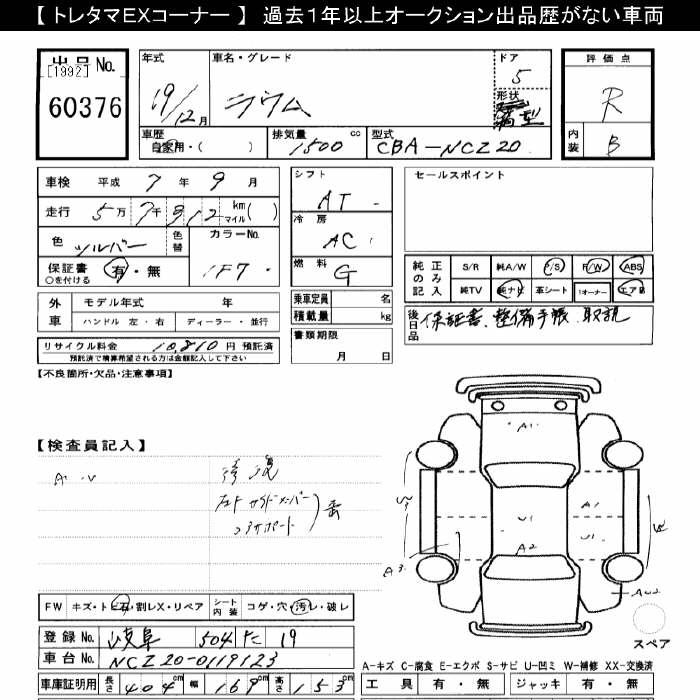 【 トレタマEXコーナー 】 過去1年以上オークション出品歴がない車両
出品 No.
[1992]
60376
年式
19/12月
車名・グレード
ラウム
ドア
5
形状
箱型
評価点
R
内装
B
車歴
自家用・( )
排気量
1500 cc
型式
CBA-NCZ20
車検 平成 7 年 9 月
走行 5万 7千 912 km マイル ( )
色 シルバー 色替 カラーNo. 1F7
保証書 ○を付ける 有・無
シフト
AT
冷房
AC
燃料
G
乗車定員 名
積載量 kg
書類期限
月 日
セールスポイント
純正のみ記入 S/R 純A/W P/S P/W ABS
純TV 純ナビ 革シート 1オーナー エアB
後日品 保証書、整備手帳、取説
外車 モデル年式 年
ハンドル 左・右 ディーラー・並行
リサイクル料金 10,810 円 預託済
預託済で精算希望される方は金額記入して下さい
【不良箇所・欠品・注意事項】
【検査員記入】
修復
コアサポート
A1
U1
A1
A2
U1
A3
W
FW キズ・トビ石・割レX・リペア シート内装 コゲ・穴・汚レ・破レ
登録 No. 岐阜 504 た 19
車台 No. NCZ20-0119123
車庫証明用 長さ 404 cm 幅 169 cm 高さ 153 cm
スペア
A-キズ C-腐食 E-エクボ S-サビ U-凹ミ W-補修 XX-交換済
工具 有・無 ジャッキ 有・無